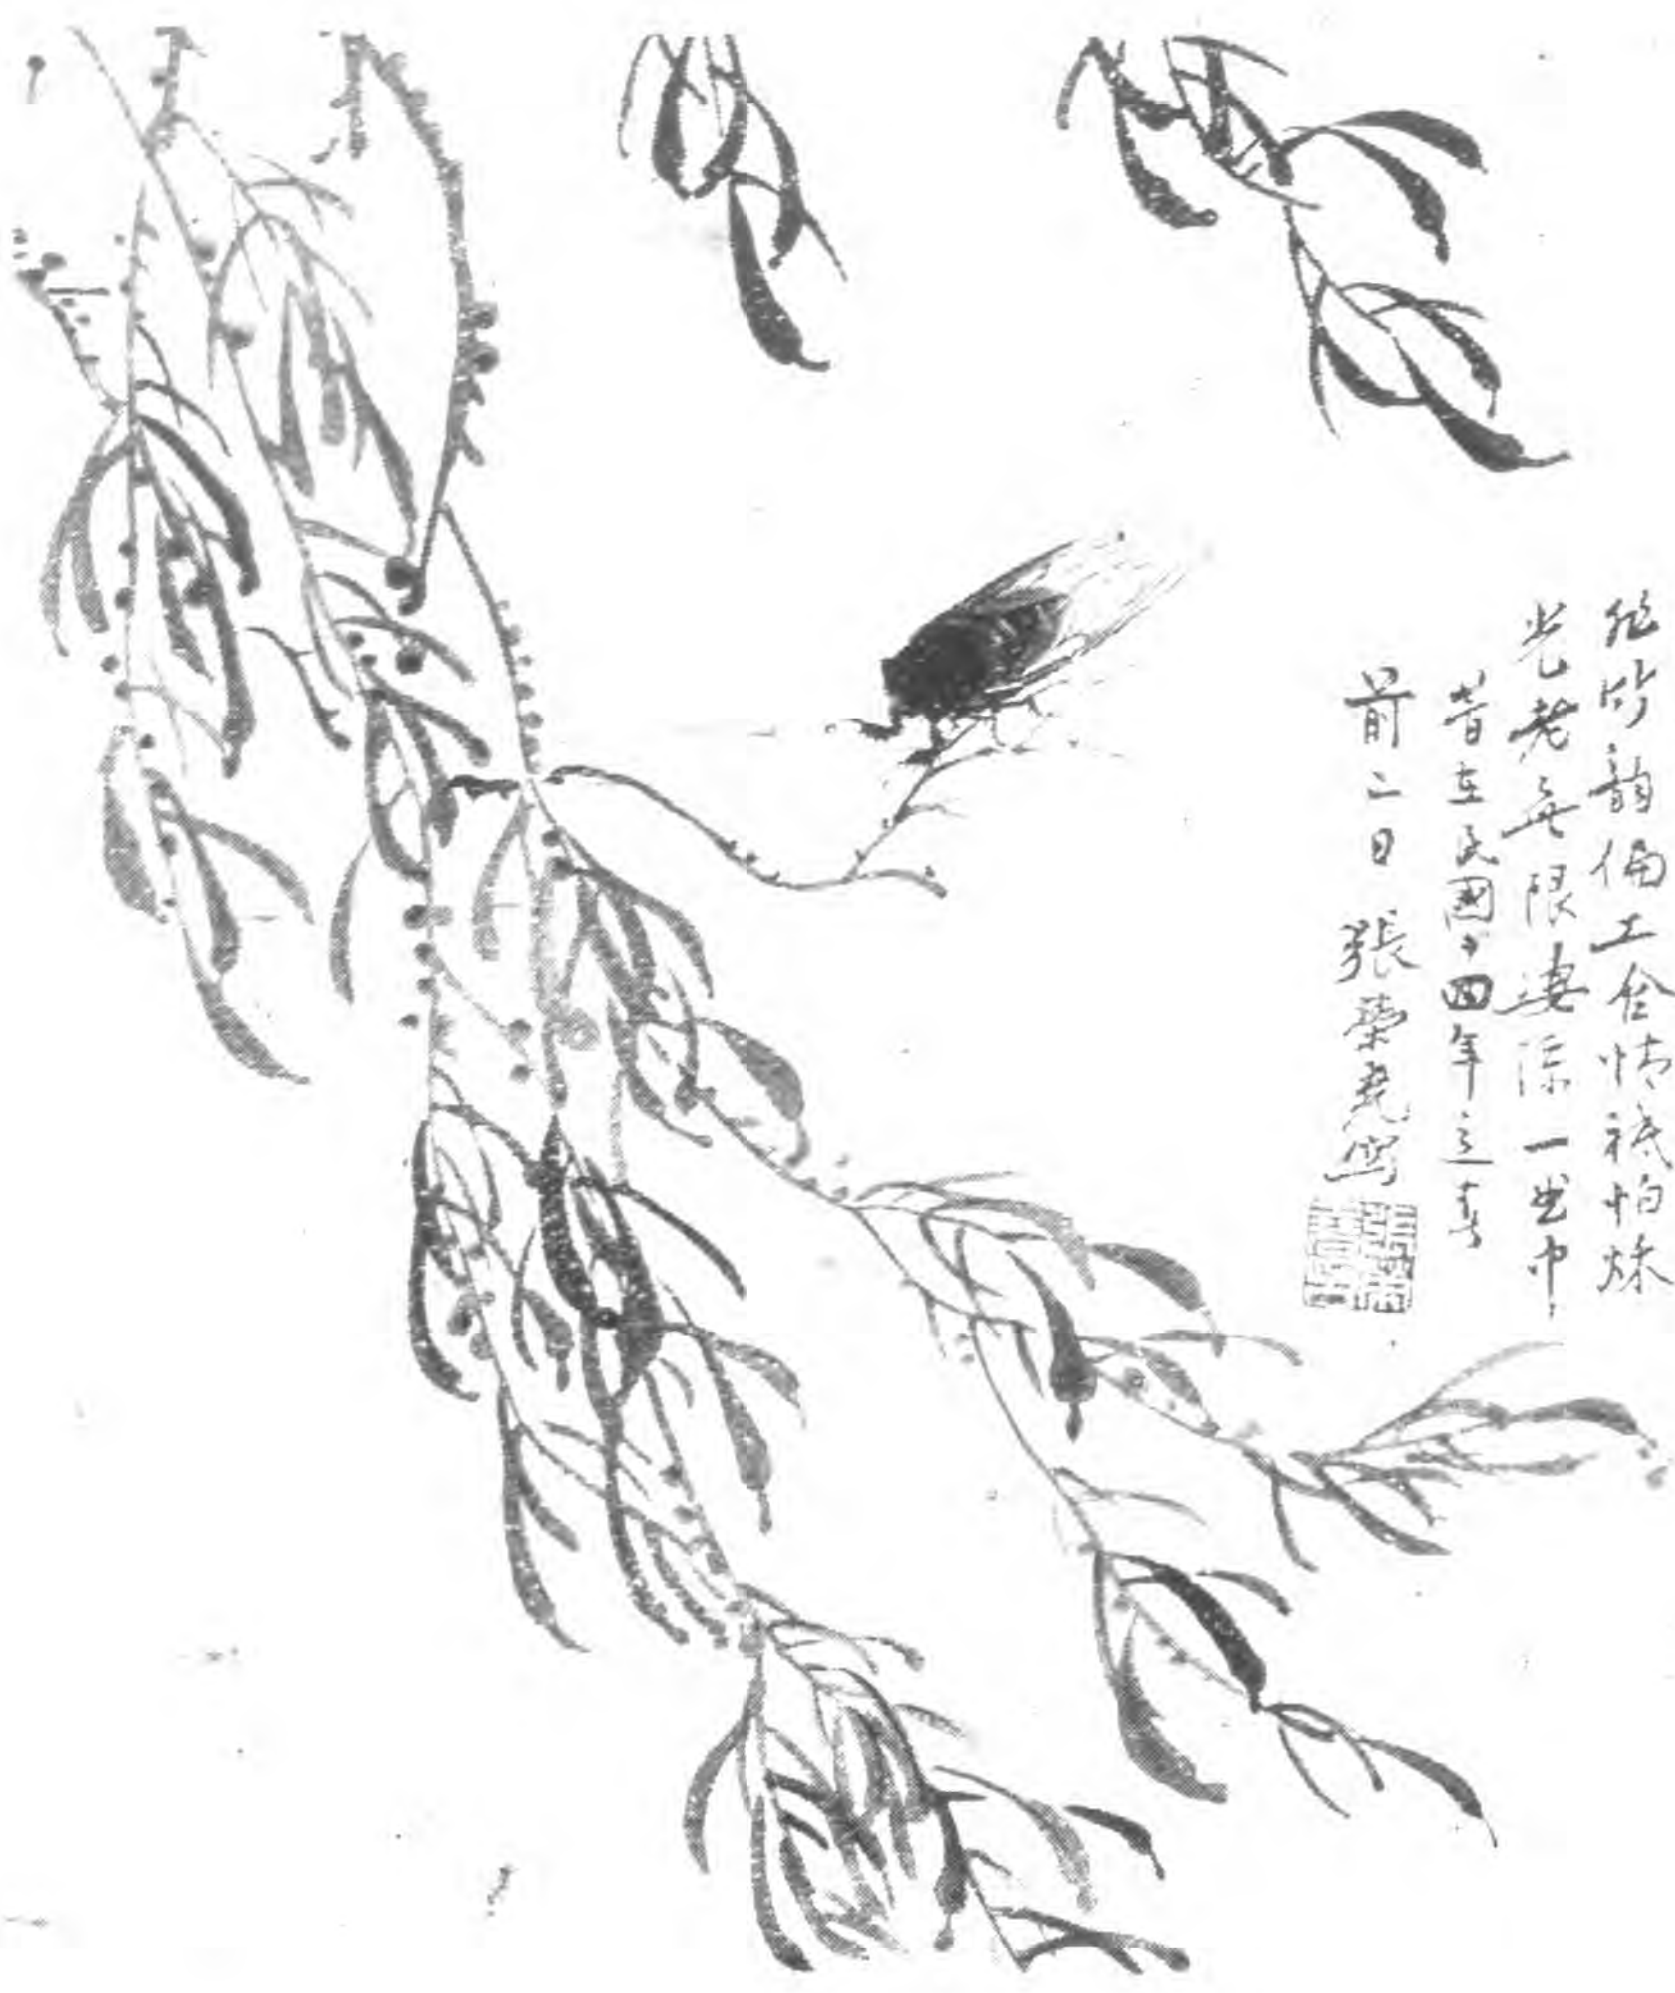 竹韻偏工合情祗怕秋
光老無限淒涼一曲中
昔在民國廿四年立春
前二日 張榮堯寫